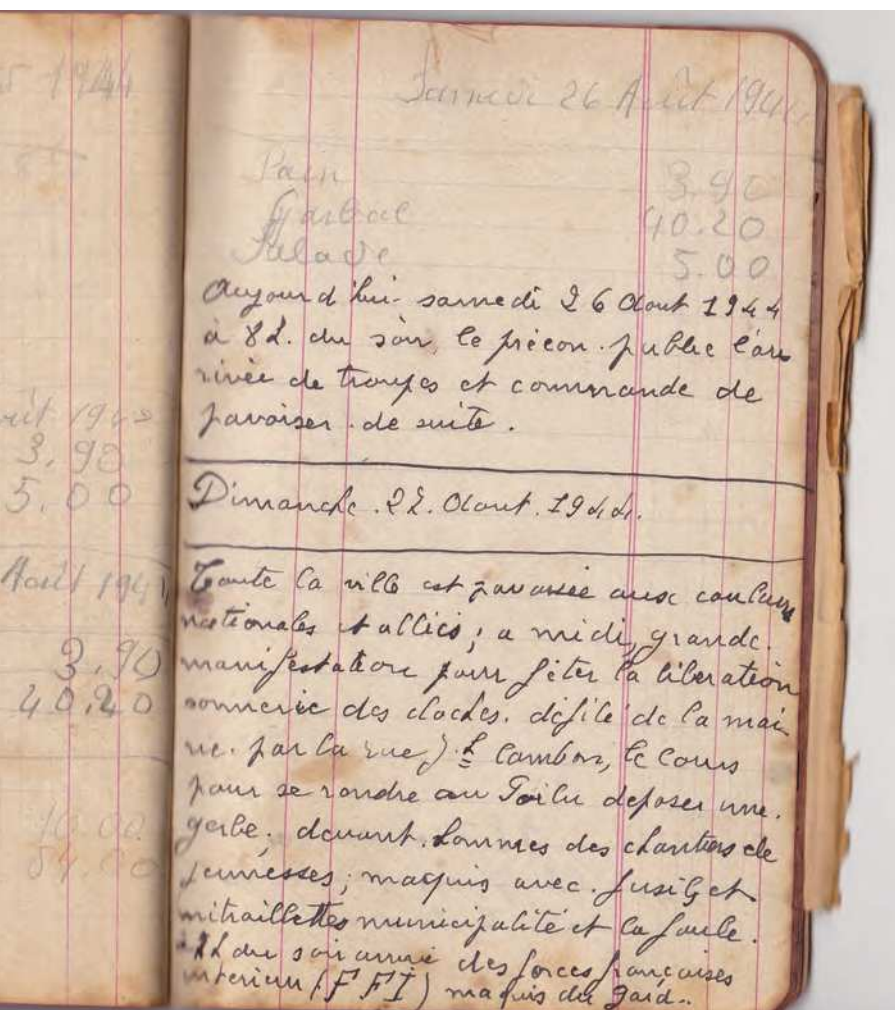 1944
août 1944
3.90
5.00
Août 1944
3.90
40.20
10.00
54.00
Samedi 26 Août 1944
Pain 3.90
40.20
Salade 5.00
Aujourd'hui samedi 26 Aout 1944
à 8h. du soir, le précon. public l'arr
rivée de troupes et commande de
pavoiser de suite.
Dimanche. 27. Aout. 1944.
Toute la ville est pavoisée aux couleurs
nationales et alliés; a midi, grande.
manifestation pour fêter la libération
sonnerie des cloches. défilé de la mai
rie. par la rue J. Cambon, le Cours
pour se rendre au Poilu deposer une.
gerbe; devant. hommes des chantiers de
jeunesses; maquis avec. fusils et
mitraillettes municipalité et la foule.
du soir arrivé des forces françaises
interieur (FFI) maquis du gard..